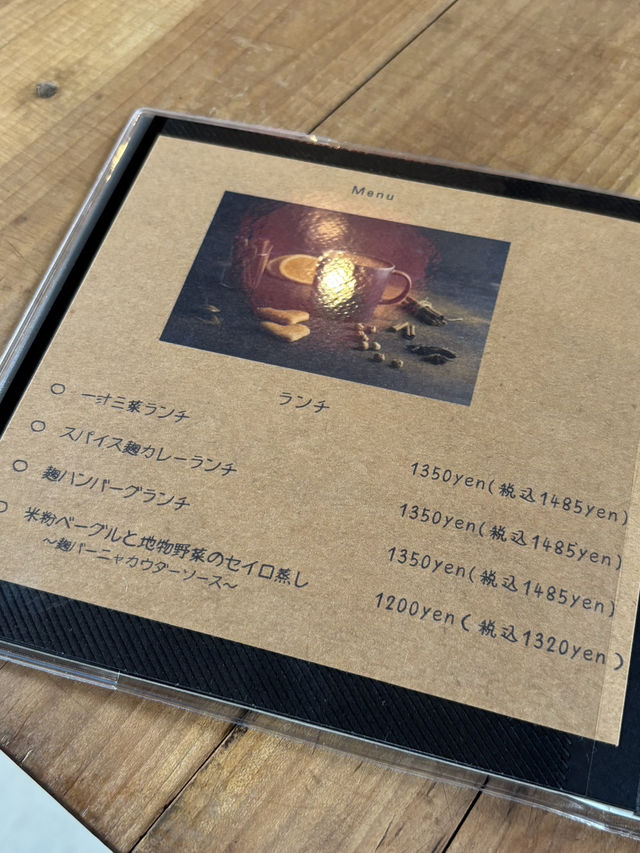 Menu
ランチ
○ 一汁三菜ランチ 1350yen(税込1485yen)
○ スパイス麹カレーランチ 1350yen(税込1485yen)
○ 麹ハンバーグランチ 1350yen(税込1485yen)
○ 米粉ベーグルと地物野菜のセイロ蒸し 1200yen(税込1320yen)
～麹バーニャカウダーソース～